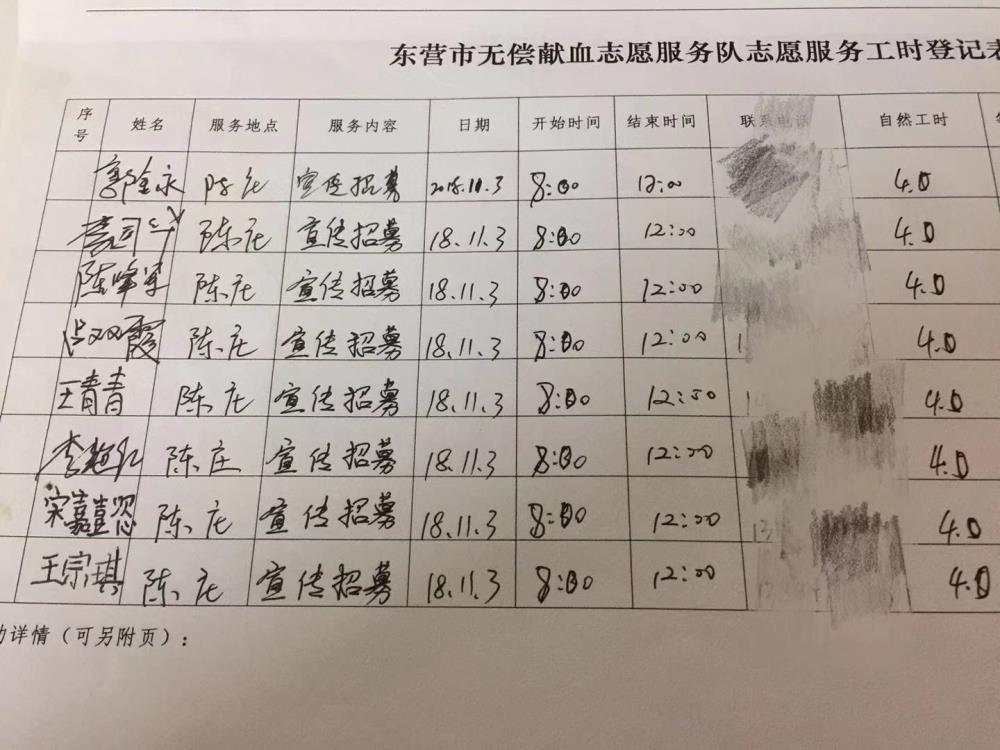 东营市无偿献血志愿服务队志愿服务工时登记表
序号 姓名 服务地点 服务内容 日期 开始时间 结束时间 联系电话 自然工时
永 陈庄 宣传招募 2018.11.3 8:00 12:00 4.0
陈庄 宣传招募 18.11.3 8:00 12:00 4.0
陈峰军 陈庄 宣传招募 18.11.3 8:00 12:00 4.0
双霞 陈庄 宣传招募 18.11.3 8:00 12:00 1 4.0
王青青 陈庄 宣传招募 18.11.3 8:00 12:00 4.0
李艳红 陈庄 宣传招募 18.11.3 8:00 12:00 4.0
宋嘉懿 陈庄 宣传招募 18.11.3 8:00 12:00 13 4.0
王宗琪 陈庄 宣传招募 18.11.3 8:00 12:00 4.0
动详情（可另附页）：